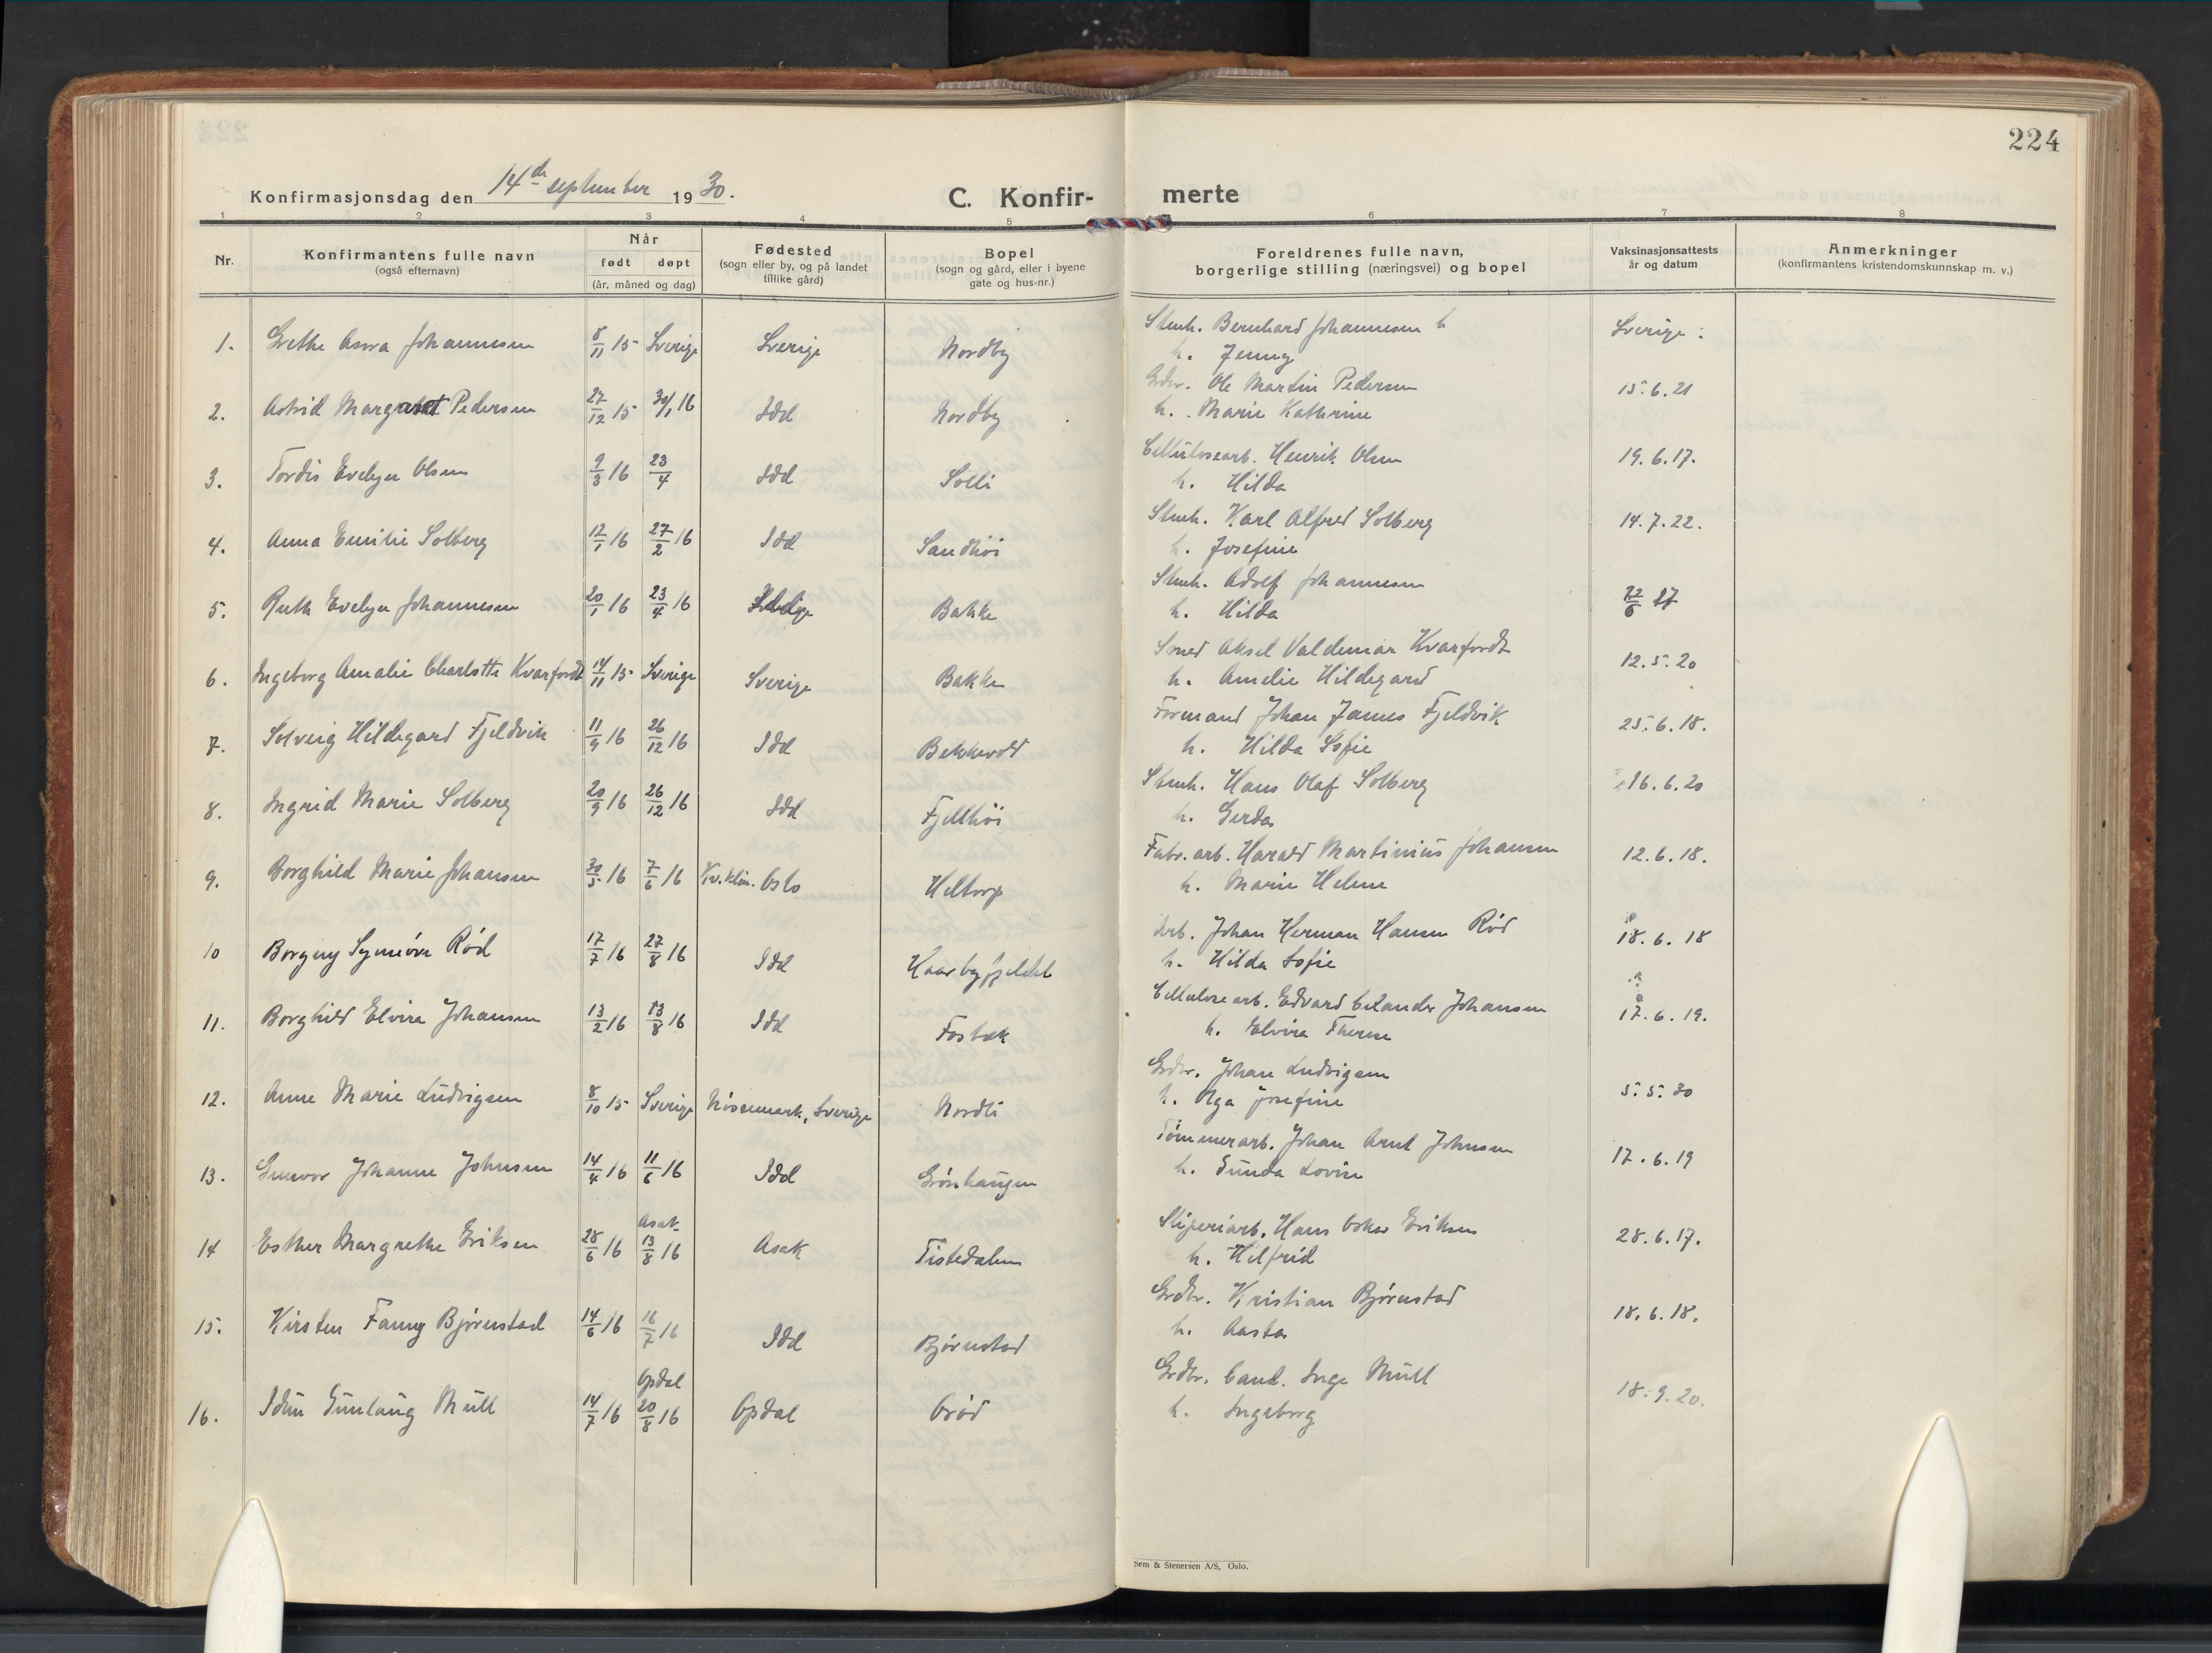 224
Konfirmasjonsdag den 14de september 1930.
C. Konfir- merte
1 2 3 4 5 6 7 8
Nr.
Konfirmantens fulle navn
(også efternavn)
Når
født døpt
(år, måned og dag)
Fødested
(sogn eller by, og på landet
tillike gård)
Bopel
(sogn og gård, eller i byene
gate og hus-nr.)
Foreldrenes fulle navn,
borgerlige stilling (næringsvei) og bopel
Vaksinasjonsattests
år og datum
Anmerkninger
(konfirmantens kristendomskunnskap m. v.)
1. Grethe Johannesen 8/11 15 Sverige Sverige Nordby Stenh. Bernhard Johannesen h Sverige
h. Jenny
2. Astrid Margaret Pedersen 27/12 15 30/1 16 Idd Nordby Grdbr. Ole Martin Pedersen 15.6.21
h. Marie Kathrine
3. Tordis Evelyn Olsen 9/3 16 23/4 Idd Solli Cellulosearb. Henrik Olsen 19.6.17.
h. Hilda
4. Anna Emilie Solberg 12/1 16 27/2 16 Idd Sandhøi Stenh. Karl Alfred Solberg 14.7.22.
h. Josefine
5. Ruth Evelyn Johannesen 20/1 16 23/4 16 Bakke Stenh. Adolf Johannesen 22/6 27
h. Hilda
6. Ingeborg Amalie Charlotte Kvarfordt 14/11 15 Sverige Sverige Bakke Smed Aksel Valdemar Kvarfordt 12.5.20
h. Amelie Hildegard
7. Solveig Hildegard Fjeldvik 11/9 16 26/12 16 Idd Bekkevold Formand Johan James Fjeldvik 25.6.18.
h. Hilda Sofie
8. Ingrid Marie Solberg 20/9 16 26/12 16 Idd Fjellhøi Stenh. Hans Olaf Solberg 16.6.20
h. Gerda
9. Borghild Marie Johansen 30/5 16 7/6 16 Kv.klin. Oslo Heltorp Fabr.arb. Harald Martinius Johansen 12.6.18.
h. Marie Helene
10 Borgny Synnøve Rød 17/7 16 27/8 16 Idd Haarbyfjeldet Arb. Johan Herman Hansen Rød 18.6.18
h. Hilda Sofie
11. Borghild Elvira Johansen 13/2 16 13/8 16 Idd Fosbæk Cellulosearb. Edvard Johansen 17.6.19.
h. Elvira Therese
12. Anne Marie Ludvigsen 8/10 15 Sverige Nössemark, Sverige Nordli Grdbr. Johan Ludvigsen 5.5.30
h. Olga Josefine
13. Gunvor Johanne Johnsen 14/4 16 11/6 16 Idd Grönhaugen Tömmerarb. Johan Arnt Johnsen 17.6.19
h. Gunda Lovise
14 Esther Margrethe Eriksen 28/6 16 Asak 13/8 16 Asak Tistedalen Sliperiarb. Hans Oskar Eriksen 28.6.17.
h. Helfrid
15. Kirsten Fanny Bjørnstad 14/6 16 16/7 16 Idd Bjørnstad Grdbr. Kristian Bjørnstad 18.6.18.
h. Aasta
16. Idun Gunlaug Müll 14/7 16 Opdal 20/8 16 Opdal Ørød Grdbr. Cand. Inge Müll 18.9.20.
h. Ingeborg
Sem & Stenersen A/S, Oslo.